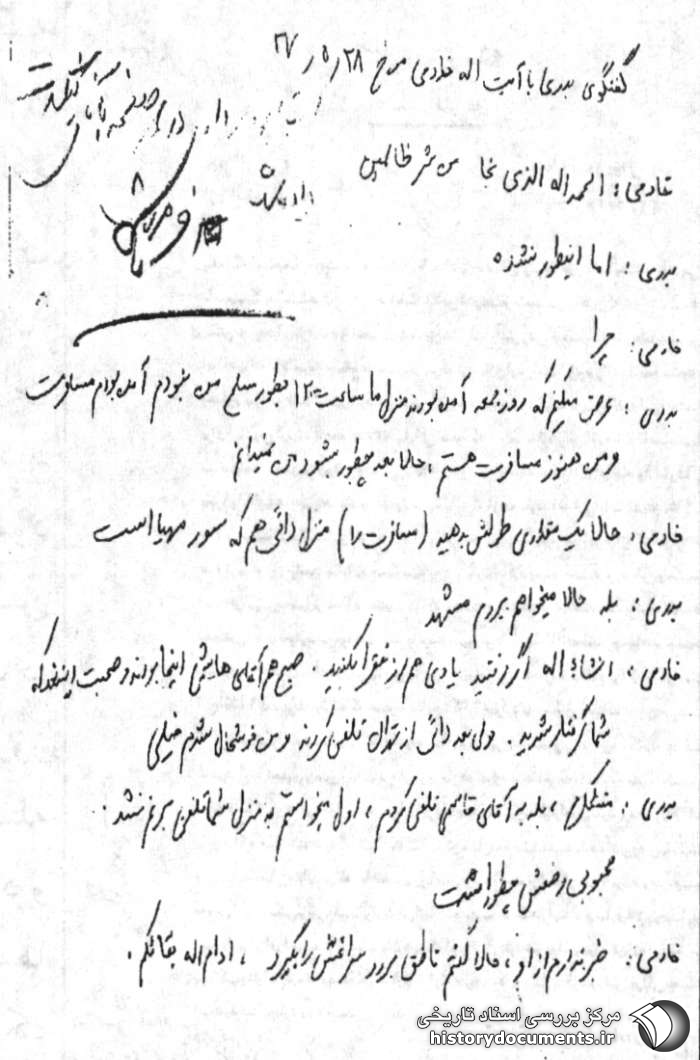 گفتگوی بدری با آیت اله خادمی مورخ ۳۷/۵/۲۸
خادمی: الحمداله الذی نجا من شر ظالمین
بدری: اما اینطور نشده
خادمی: چرا
بدری: عرض میکنم که روز جمعه آمده بودند منزل ما ساعت ۱۲ بطور مسلح من خودم آمده بودم مسافرت
و من هنوز مسافرت هستم، حالا بعد چطور میشود من نمیدانم
خادمی: حالا یک مقداری طولش بدهید (مسافرت را) منزل دائی هم که مهیا است
بدری: بله حالا میخواهم بروم مشهد
خادمی: انشاء اله اگر رفتید یادی هم از رفقا بکنید. صبح هم آقای هاشمی اینجا بودند و صحبت این شد که
شما گرفتار شدید. ولی بعد دائی از تلفن کردند و من خوشحال شدم خیلی
بدری: متشکرم، بله به آقای قاسمی تلفن کردم، اول میخواستم به منزل شما تلفن بزنم نشد.
محبوبی وضعش چطور است
خادمی: خبر ندارم از او، حالا گفتم ناطق برود سراغش را بگیرد، ادام اله بقائکم.
مرکز بررسی اسناد تاریخی
historydocuments.ir